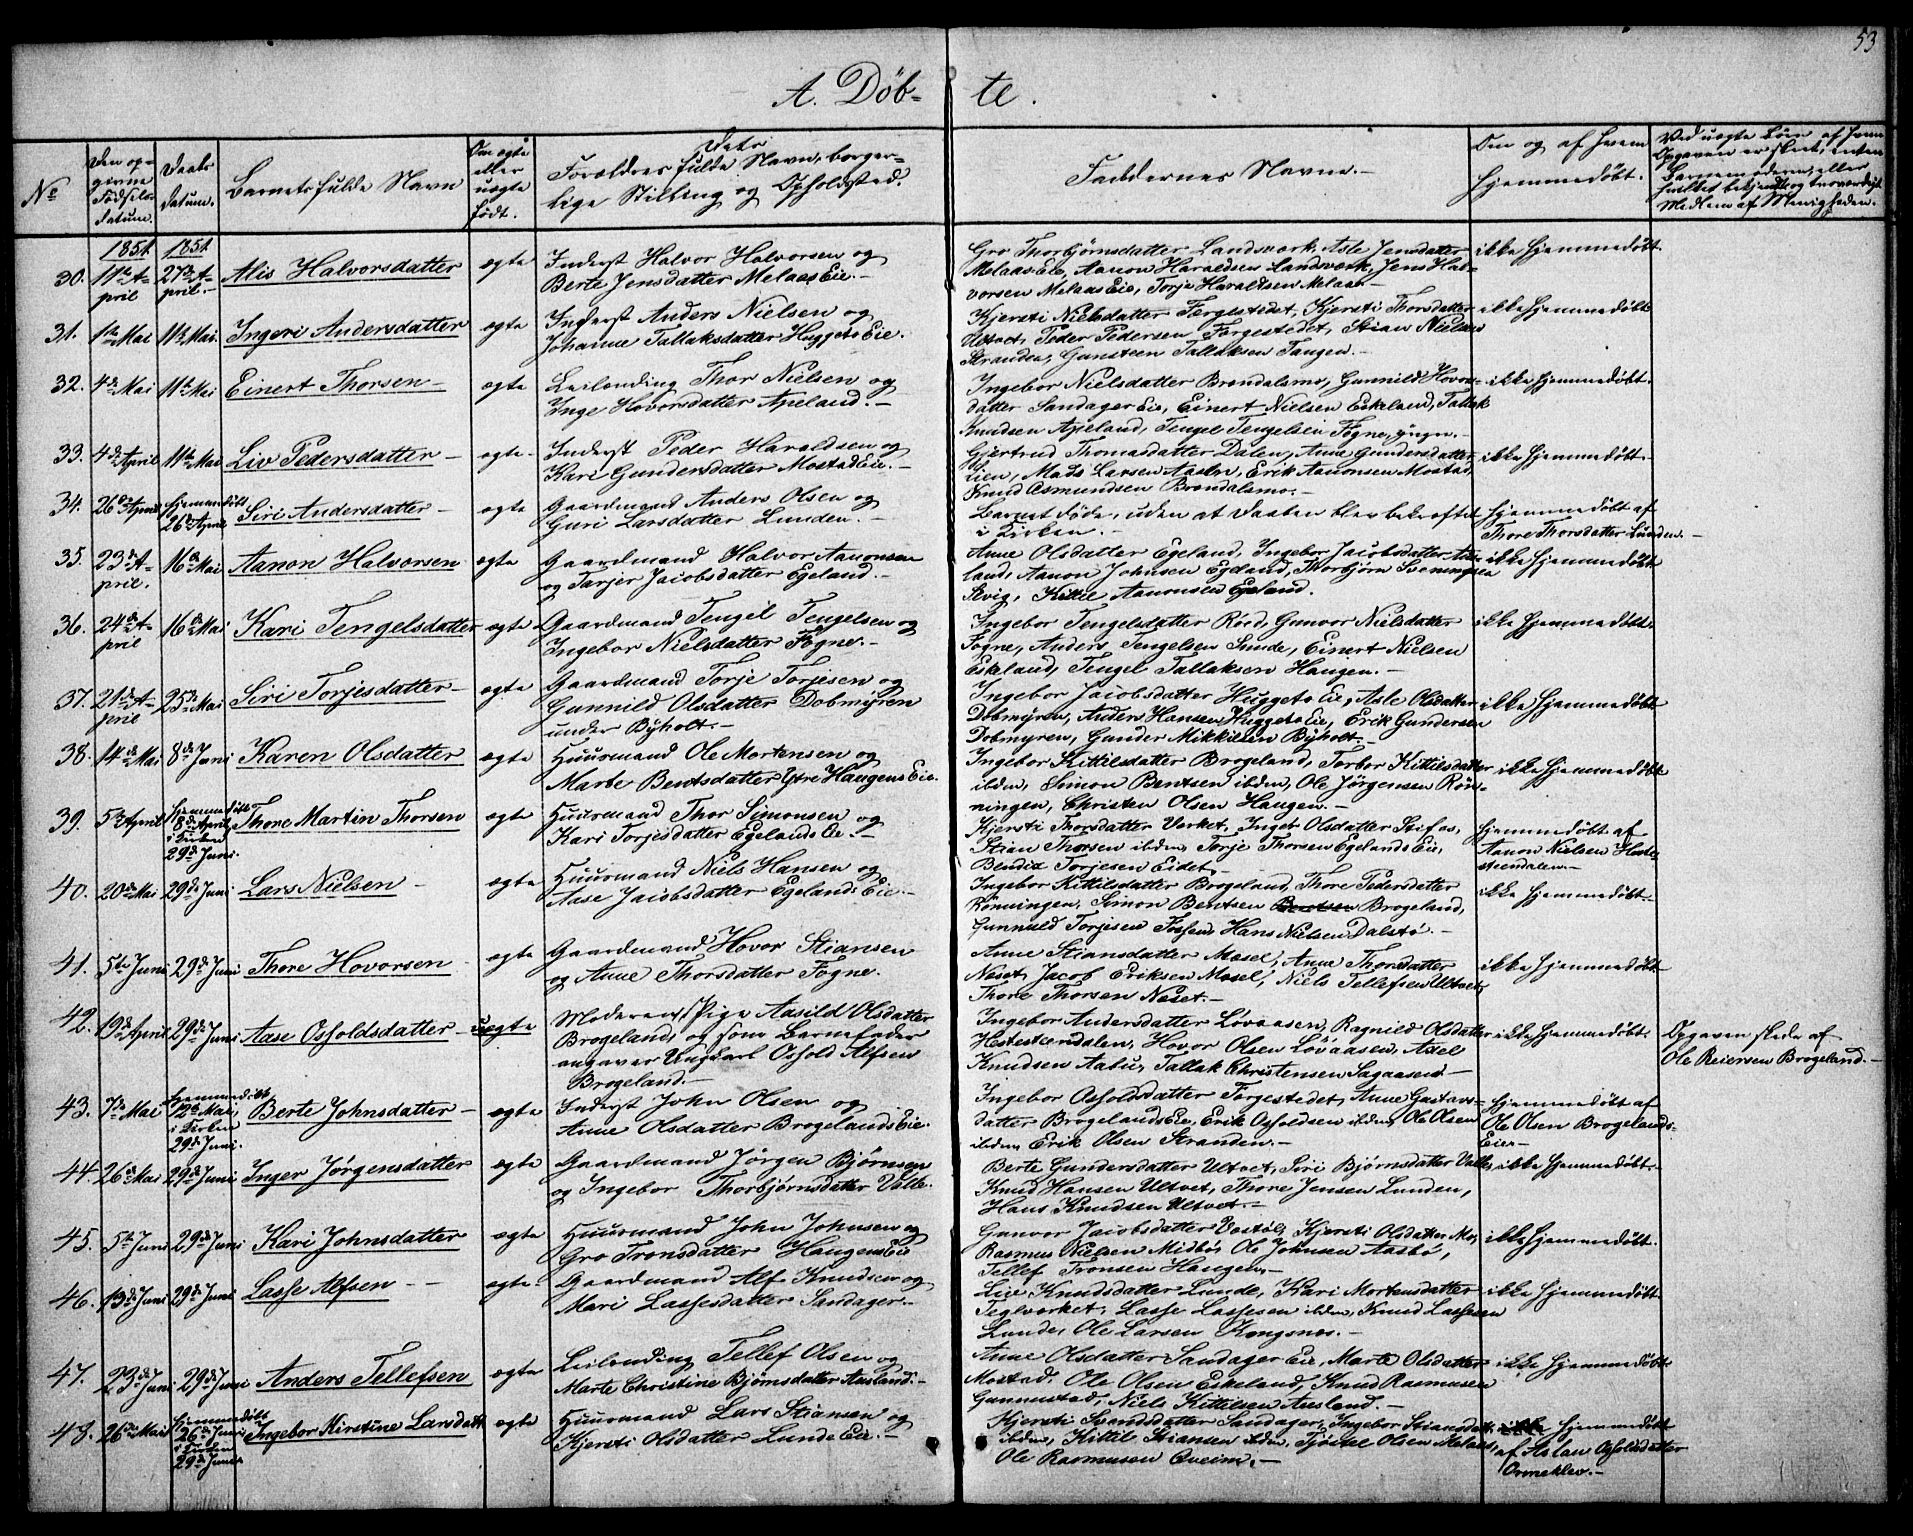 53
A. Døb- te.
No
Den op-
givne
Fødsels-
datum.
Daabs
datum.
Barnets fulde Navn
Om ægte
eller
uægte
født.
Dets
Forældres fulde Navn, borger-
lige Stilling og Opholdsted.
Faddernes Navne.
Om og af hvem
hjemmedøbt.
Ved uægte Børn af hvem
Opgaven er skeet, enten
Barnemoderen, eller
hvilket bekjendt og troværdigt
Medlem af Menigheden.
1851. 1851.
30. 11te A-
pril
27de A-
pril.
Alis Halvorsdatter
ægte
Inderst Halvor Halvorsen og
Berte Jensdatter Melaas Eie.
Gro Thorbjørnsdatter Landsverk, Asle Jensdatter
Melaas Eie, Aanon Haraldsen Landsverk, Jens Hal-
vorsen Melaas Eie, Torje Haraldsen Melaas
ikke hjemmedøbt.
31. 1ste Mai
11te Mai.
Ingeri Andersdatter
ægte
Inderst Anders Nielsen og
Johanne Tallaksdatter Huggeto Eie.
Kjersti Nielsdatter Forgestedet, Kjersti Thorsdatter
Ultvet, Peder Pedersen Forgestedet, Stian Nielsen
Stranden, Gunsteen Tallaksen Tangen.
ikke hjemmedøbt
32. 4de Mai
11te Mai
Einert Thorsen
ægte
Leilending Thor Nielsen og
Inge Hovorsdatter Apeland.
Ingebor Nielsdatter Brøndalsmo, Gunnild Hovors-
datter Sandager Eie, Einert Nielsen Eskeland, Tallak
Knudsen Apeland, Tengel Tengelsen Fogne, yngre.
ikke hjemmedøbt.
33. 4de April
11te Mai
Liv Pedersdatter
ægte
Inderst Peder Haraldsen og
Kari Gundersdatter Mostad Eie.
Gjertrud Thomasdatter Dalen, Anne Gundersdatter
Lien, Mads Larsen Aasen, Erik Aanonsen Mostad,
Knud Asmundsen Brøndalsmo.
ikke hjemmedøbt.
34. 26de April
hjemmedøbt
26de April
Siri Andersdatter
ægte
Gaardmand Anders Olsen og
Guri Larsdatter Lunden.
Barnet døde, uden at Daaben blev bekræftet
i Kirken.
hjemmedøbt af
Thore Thorsdatter Lunden.
35. 23de A-
pril.
16de Mai
Aanon Halvorsen
ægte
Gaardmand Halvor Aanonsen
og Tarjer Jacobsdatter Egeland.
Anne Olsdatter Egeland, Ingebor Jacobsdatter
land, Aanon Johnsen Egeland, Thorbjørn Sveningsen
Kittil Aanonsen Egeland.
ikke hjemmedøbt
36. 24de A-
pril
16de Mai
Kari Tengelsdatter
ægte
Gaardmand Tengil Tengelsen og
Ingebor Nielsdatter Fogne.
Ingebor Tengelsdatter Røed, Gunvor Nielsdatter
Fogne, Anders Tengelsen Sunde, Einert Nielsen
Eskeland, Tengel Tallaksen Haugen.
ikke hjemmedøbt.
37. 21de A-
pril
25de Mai
Siri Torjesdatter
ægte
Gaardmand Torje Torjesen og
Gunnild Olsdatter Dobmyren
under Byholt.
Ingebor Jacobsdatter Huggeto Eie, Asle Olsdatter
Dobmyren, Anders Hansen Huggeto Eie, Erik Gundersen
Dobmyren, Gunder Mikkelsen Byholt.
ikke hjemmedøbt
38. 14de Mai
8de Juni
Karen Olsdatter
ægte
Huusmand Ole Mortensen og
Marte Bentsdatter Ytre Haugens Eie.
Ingebor Kittilsdatter Brogeland, Torbor Kittilsdatter
ibdem, Simon Bentsen ibdem, Ole Jørgensen Røn-
ningen, Christen Olsen Haugen.
ikke hjemmedøbt
39. 5te April
hjemmedøbt
8de April,
i Kirken
29de Juni.
Thore Martin Thorsen
ægte
Huusmand Thor Simonsen og
Kari Torjesdatter Egelands Eie.
Kjersti Thorsdatter Verket, Ingeb Olsdatter Stifos,
Stian Thorsen ibdem, Torje Thorsen Egelands Eie,
Bendix Torjesen Eidet.
hjemmedøbt af
Aanon Nielsen Heste-
stiendalen.
40. 20de Mai
29de Juni
Lars Nielsen
ægte
Huusmand Niels Hansen og
Aase Jacobsdatter Egelands Eie.
Ingebor Kittilsdatter Brogeland, Thore Pedersdatter
Rønningen, Simon Bentsen Bentsen Brogeland,
Gunnuld Torjesen Fosfene, Hans Nielsen Dalstø.
ikke hjemmedøbt.
41. 5te Juni
29de Juni
Thore Hovorsen
ægte
Gaardmand Hovor Stiansen
og Anne Thorsdatter Fogne.
Anne Stiansdatter Mosel, Anne Thorsdatter
Neset, Jacob Eriksen Mosel, Niels Tellefsen Ultvet,
Thore Thorsen Neset.
ikke hjemmedøbt
42. 19de April
29de Juni
Aase Osfoldsdatter
uægte
Moderen Pige Aasild Olsdatter
Brogeland, og som Barnefader
angaver Ungkarl Osfold Alfsen
Brogeland.
Ingebor Andersdatter Løvaasen, Ragnild Olsdatter
Hestestiendalen, Hovor Olsen Løvaasen, Axel
Knudsen Aabu, Tallak Christensen Sagaasen
ikke hjemmedøbt.
Opgaven skede af
Ole Reiersen Brogeland.
43. 7de Mai
hjemmedøbt
12te Mai,
i Kirken
29de Juni.
Berte Johnsdatter
ægte
Inderst John Olsen og
Anne Olsdatter Brogelands Eie.
Ingebor Osfoldsdatter Forgestedet, Anne Gustavs-
datter Brogelands Eie, Erik Osfoldsen ibdem, Ole Olsen
ibdem, Erik Olsen Stranden.
hjemmedøbt af
Ole Olsen Brogelands-
Eie
44. 26de Mai
29de Juni
Inger Jørgensdatter
ægte
Gaardmand Jørgen Bjørnsen
og Ingebor Thorbjørnsdatter Valle.
Berte Gundersdatter Ultvet, Siri Bjørnsdatter Valle,
Knud Hansen Ultvet, Thore Jensen Lunden,
Hans Knudsen Ultvet.
ikke hjemmedøbt.
45. 5te Juni
29de Juni
Kari Johnsdatter
ægte
Huusmand John Johnsen og
Gro Tronsdatter Haugens Eie
Gunvor Jacobsdatter Vastøl, Kjersti Olsdatter Mo,
Rasmus Nielsen Midbø, Ole Johnsen Aasbø,
Tellef Tronsen Haugen.
ikke hjemmedøbt.
46. 13de Juni
29de Juni
Lasse Alfsen
ægte
Gaardmand Alf Knudsen og
Mari Lassesdatter Sandager.
Liv Knudsdatter Lunde, Kari Mortensdatter
Teglverket, Lasse Lassesen ibdem, Knud Lassesen
Lunde, Ole Larsen Kongsnes.
ikke hjemmedøbt
47. 23de Juni
29de Juni
Anders Tellefsen
ægte
Leilending Tellef Olsen og
Marte Christine Bjørnsdatter Ausland.
Anne Olsdatter Sandager Eie, Marte Olsdatter
Mostad, Ole Olsen Eskeland, Knud Rasmusen
Gunnestad, Niels Kittilsen Ausland.
ikke hjemmedøbt
48. 26de Mai
hjemmedøbt
26de Juni
i Kirken
29de Juni
Ingebor Kirstine Larsdatt.
ægte
Huusmand Lars Stiansen og
Kjersti Olsdatter Lunde Eie.
Kjersti Svendsdatter Sandager, Ingebor Stiansdatt.
ibdem, Kittil Stiansen ibdem, Tjøstel Olsen Melaas,
Ole Rasmusen Qveim.
ikke hjemmedøbt
af Aslau Osfoldsdatter
Ormeklev.